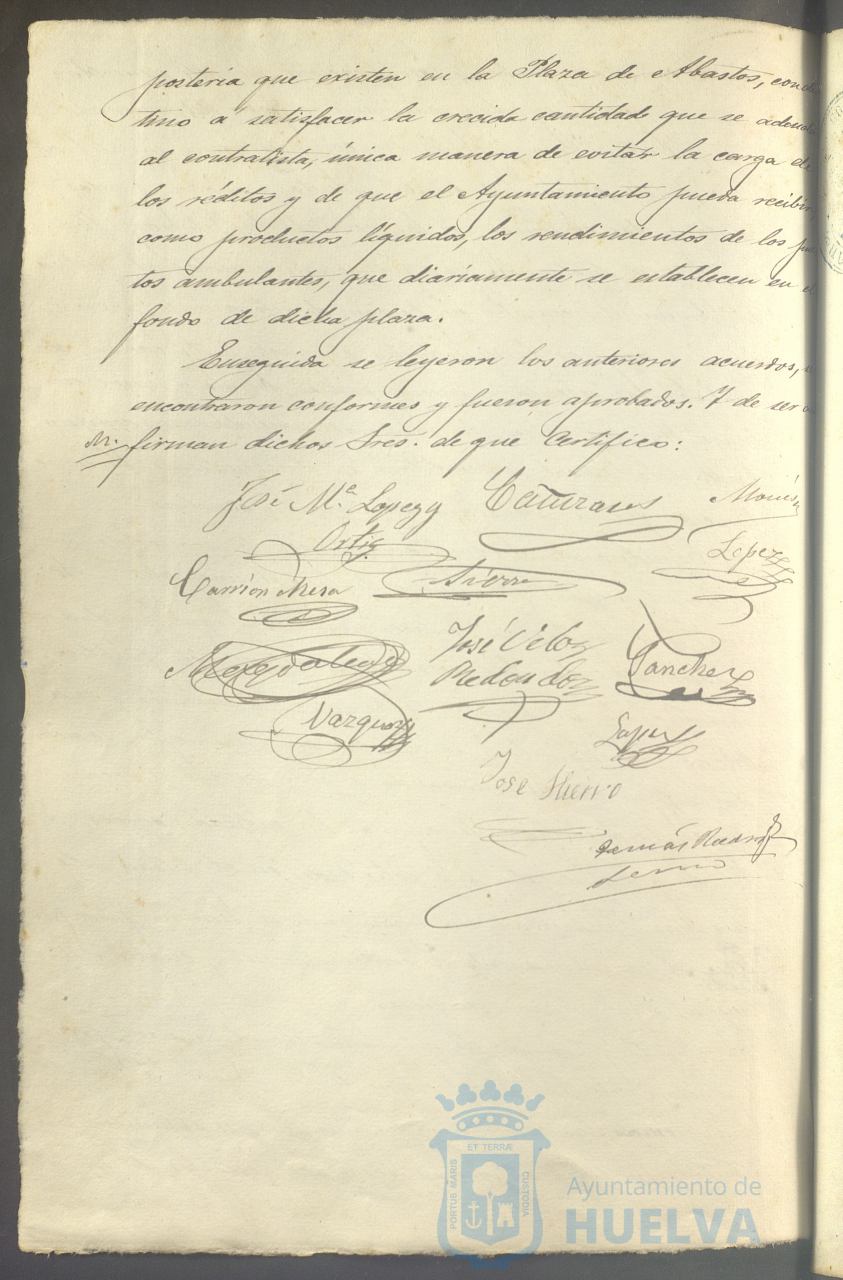 postería que existen en la Plaza de Abastos, con des
tino a satisfacer la crecida cantidad que se adeuda
al contratista, única manera de evitar la carga de
los réditos y de que el Ayuntamiento pueda recibir,
como productos líquidos, los rendimientos de los pues
tos ambulantes, que diariamente se establecen en el
fondo de dicha plaza.
Enseguida se leyeron los anteriores acuerdos, se
encontraron conformes y fueron aprobados. Y de ser
firman dichos Sres. de que Certifico:
José Mª Lopez y
Ortiz
Cañizares
López
Carrión Mesa
Sierra
José
Redondo
Sanchez
Vazquez
Lopez
José Hierro
Tomás
PORTUS MARIS
ET TERRÆ
CUSTODIA
Ayuntamiento de
HUELVA